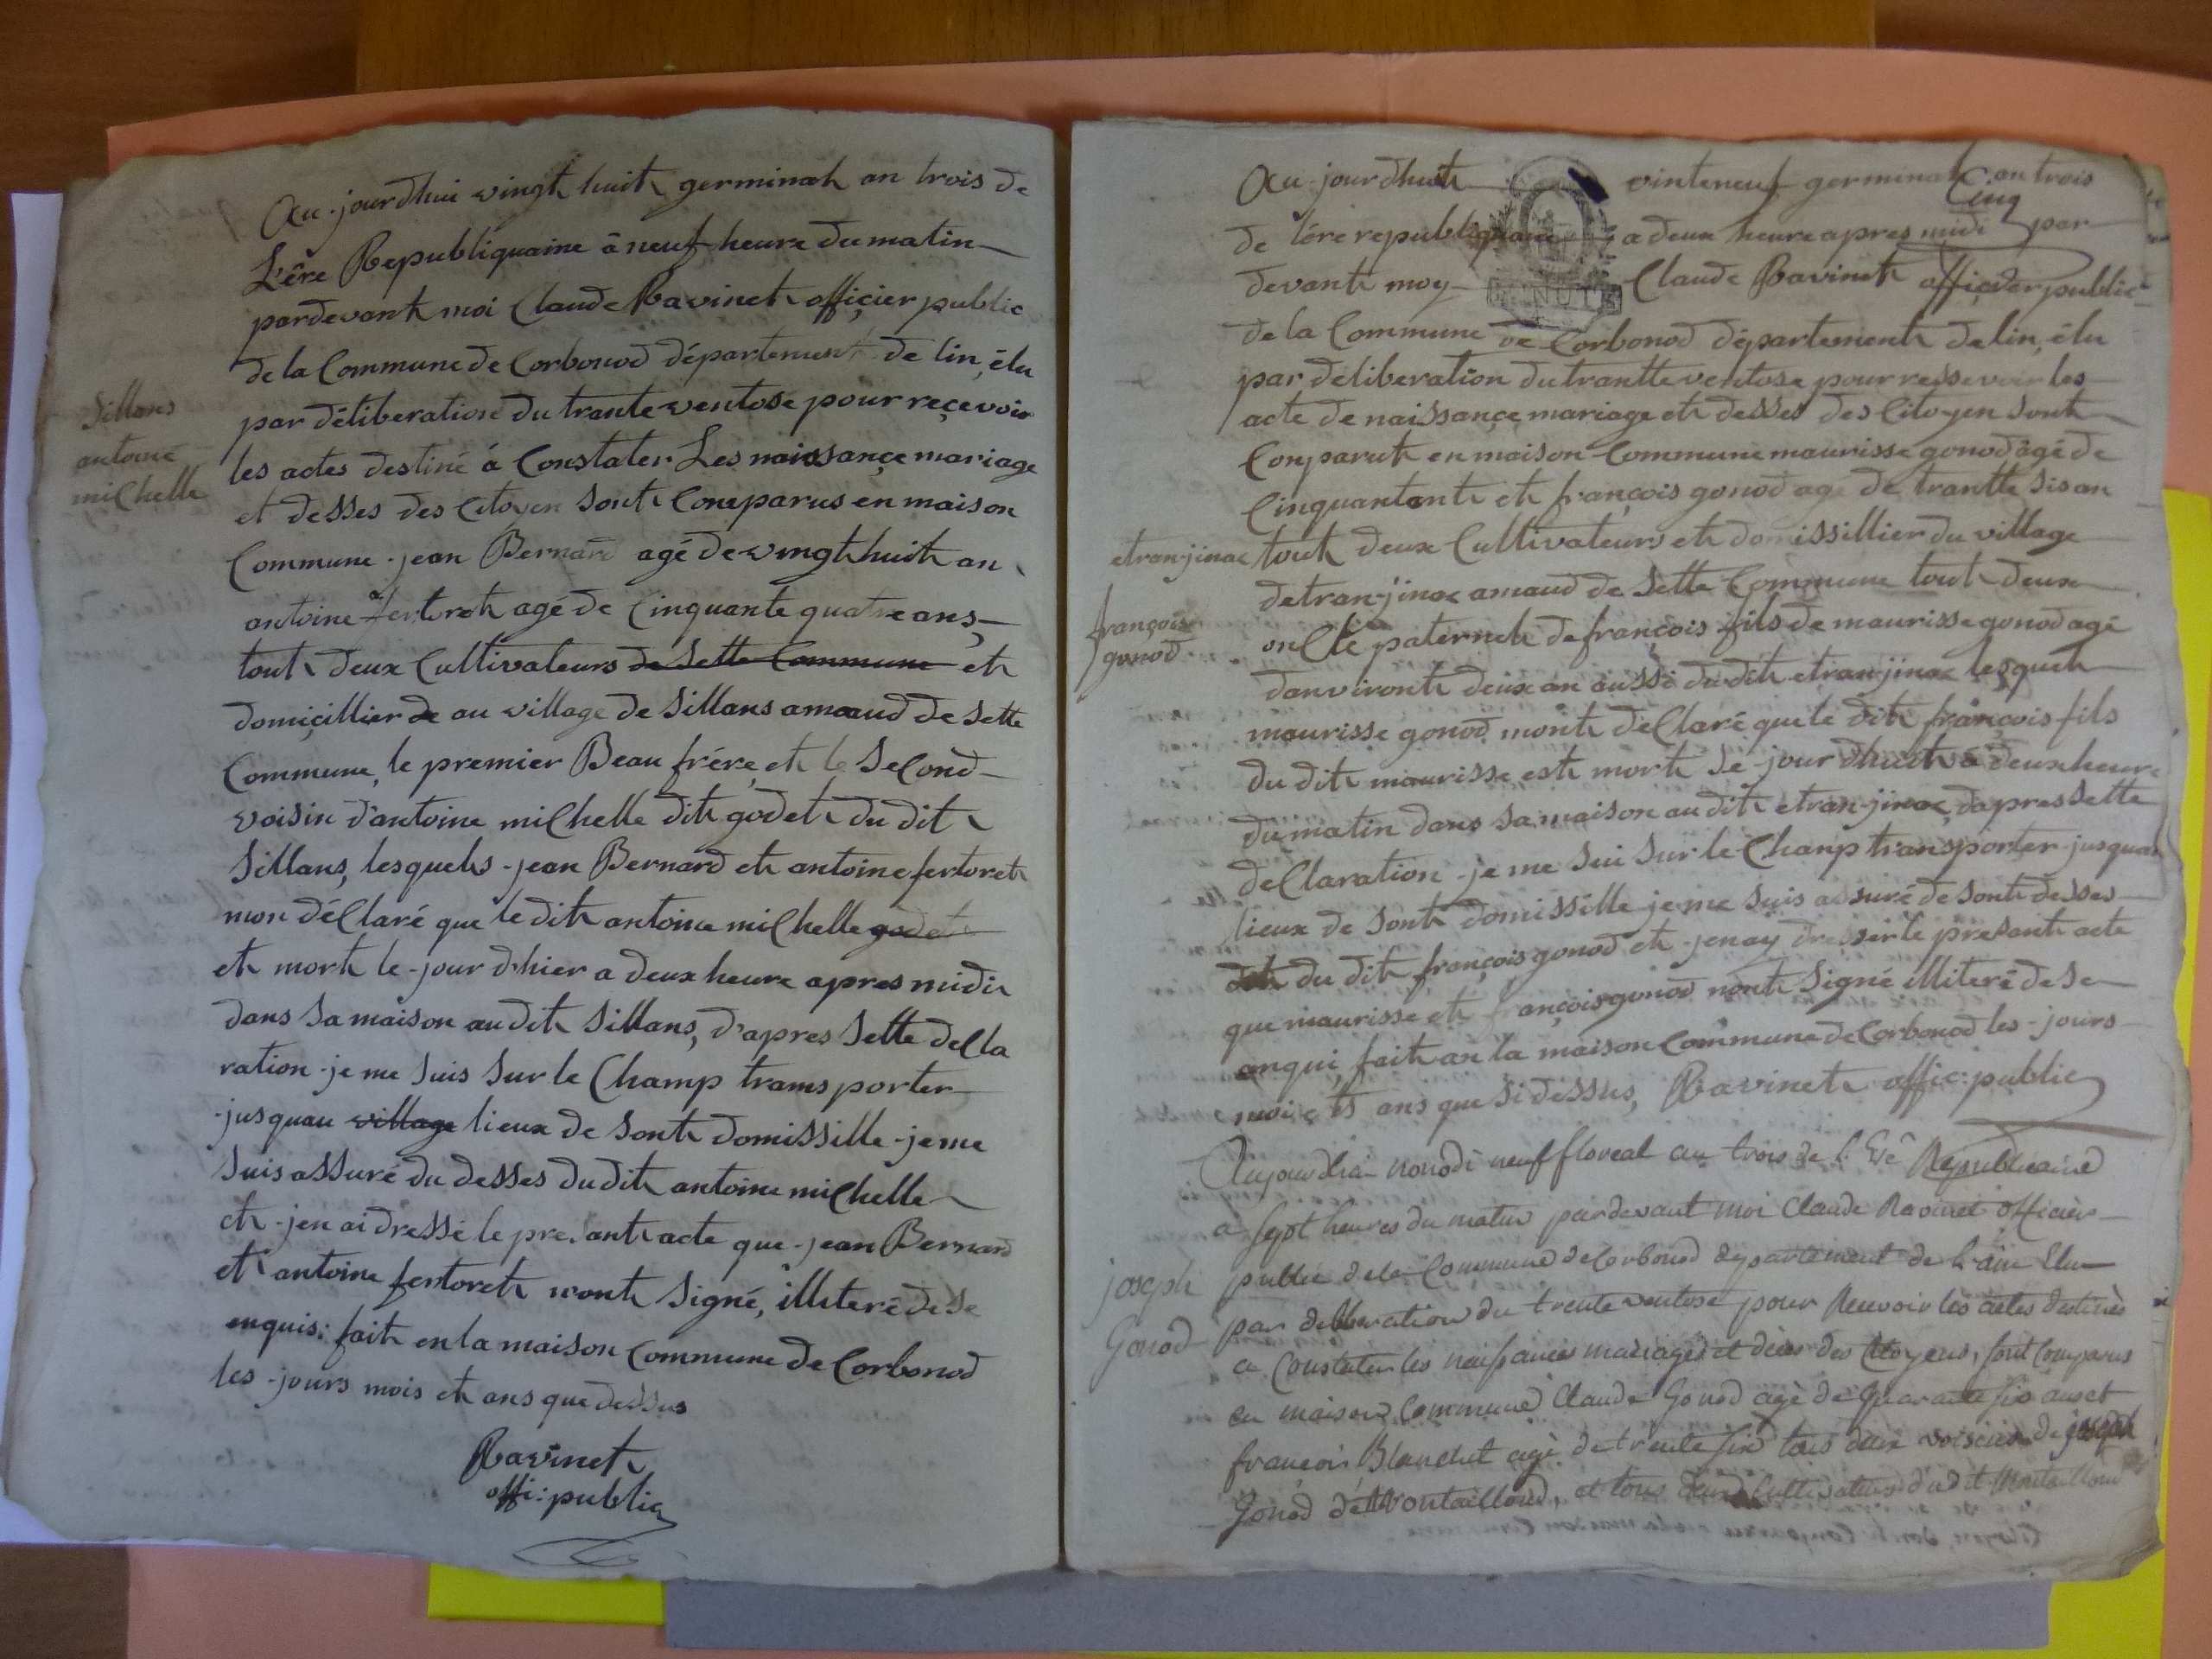 Au-jourdhui vingt huit germinal an trois de
L'êre Republiquaine â neuf heure du matin
pardevant moi Claude Ravinet officier public
de la Commune de Corbonod département de lin, élu
par déliberation du trante ventose pour reçevoir
Sillans
antoine
milhelle
les actes destiné á Constater Les naissançe mariage
et desses des Citoyen sont Comparus en maison
Commune jean Bernard agé de vingt huit an
antoine fertoret agé de Cinquante quatre ans
tout deux Cultivateurs de sette Commune et
domiçillier de au village de Sillans amaud de sette
Commune, le premier Beau frére et le seCond
voisin d'antoine milhelle dit godet du dit
Sillans, lesquels jean Bernard et antoine fertoret
mon déClaré que le dit antoine milhelle godet
et mort le jour d'hier a deux heure apres midi
dans sa maison audit Sillans, d'apres sette decla
ration je me suis sur le Champ transporter
jusquau village lieux de sont domissille je me
suis assuré du desses du dit antoine milhelle
et jen ai dressé le presant acte que jean Bernard
et antoine fertoret nont signé, illiteré de se
enquis: fait en la maison Commune de Corbonod
les jours mois et ans que dessus
Ravinet
offi: public
Cinq
Au-jourdhuit vinteneuf germinal an trois
de l'ére republiquaine a deux heure apres midi par
devant moy Claude Ravinet offiçier public
MINUTE
de la Commune de Corbonod département de lin, élu
par deliberation du trantte ventose pour ressevoir les
acte de naissançe mariage et desses des Citoyen sont
Conparut en maison Commune maurisse gonod âgé de
Cinquantant et françois gonod agé de trantte sis an
etranjinae
tout deux Cultivateurs et domissillier du village
detranjinae amaud de sette Commune tout deux
françois
gonod
onCle paternel de françois fils de maurisse gonod agé
danviront deux an aussi du dit etranjinae lesquel
maurisse gonod mont deClaré que le dit françois fils
du dit maurisse est mort se jour dhuit á deux heure
du matin dans sa maison au dit etranjinae dapres sette
deClaration je me sui sur le Champ transporter jusquau
lieux de sont domissille je me suis assuré de sont desses
du dit françois gonod et jenay dresser le presant acte
que maurisse et françois gonod nont signé illiteré de se
anqui, fait an la maison Commune de Corbonod les jours
mois et ans que sidessus, Ravinet offic: public
Aujourdhui nonodi neuf floreal an trois de l'Erê Republicaine
a sept heures du matin pardevant moi Claude Ravinet officier
joseph
Gonod
public de la Commune de Corbonod departement de l'ain Elu
par deliberation du trente ventose pour Recevoir les actes destinès
a Constater les naissances mariages et décès des Citoyens, sont Comparus
en maison Commune Claude Gonod agé de quarante six ans et
françois Blanchet agé de trente six tous deux voisins de joseph
Gonod de Montailloud, et tous deux Cultivateurs dudit Montailloud